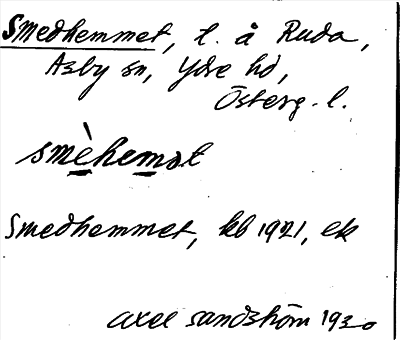 Smedhemmet, t. å Ruda,
Asby sn, Ydre hd,
Österg. l.
smèhemət
Smedhemmet, kb 1921, ek
Axel Sandström 1930